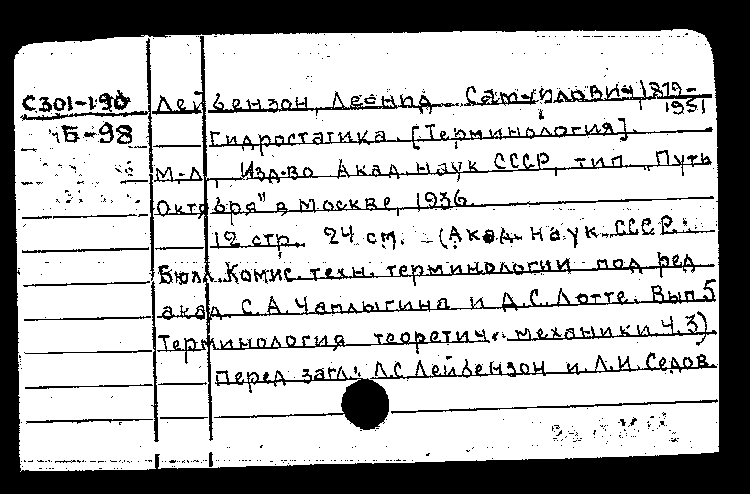 С301-190 Лейбензон, Леонид Самуилович, 1879-
1951
Б-98
Гидростатика. [Терминология].
М.-Л., Изд-во Акад. наук СССР, тип. "Путь
Октября" в Москве, 1936
12 стр. 24 см. (Акад. наук СССР.
Бюлл. Комис. техн. терминологии под ред.
акад. С.А. Чаплыгина и Д.С. Лотте. Вып. 5
Терминология теоретич. механики Ч. 3).
Перед загл.: Л.С. Лейбензон и Л.И. Седов.